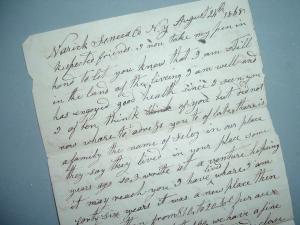 Varick Seneca Co N.y August 24th 1868
Respected friends I now take my pen in
hand to let you know that I am still
in the land of the liveing I am well and
has enjoyed good health since I seen you
I often think of you but did not
now where to adress you to of late there is
a family the name of in our place
they say they lived in your place some
years ago so I wrote at a venture hopeing
it may reach you I have where I am
forty six years it was a new place then
from $16 to 20 dol per acre
we have a fine